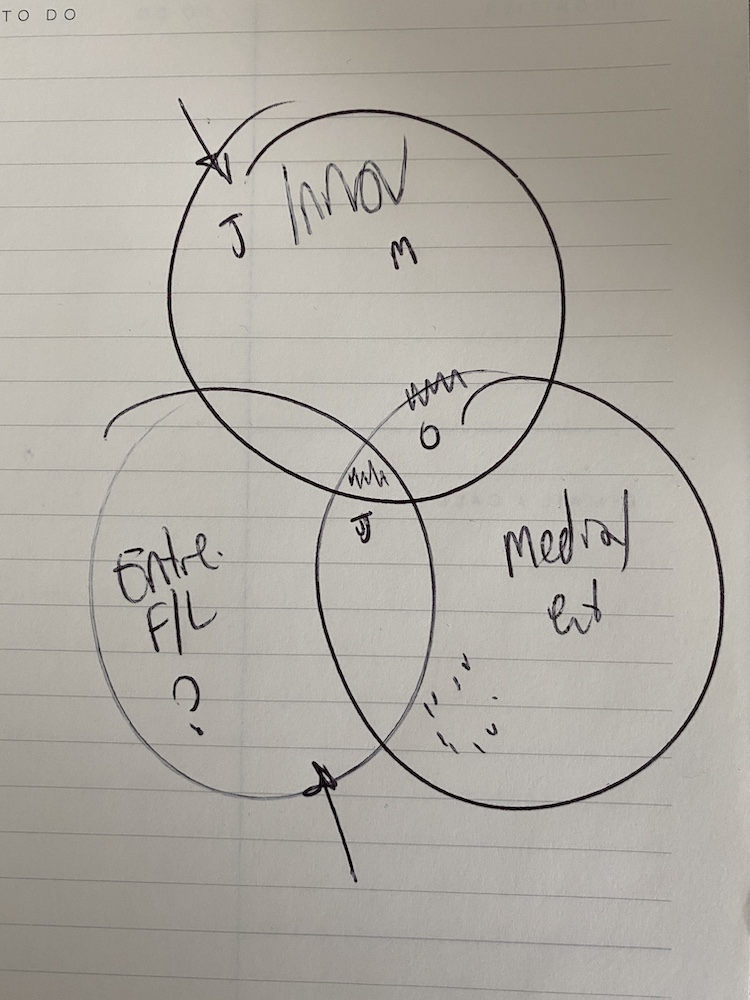 TO DO
Innov
J
M
O
J
Entre.
F/L
?
Medial